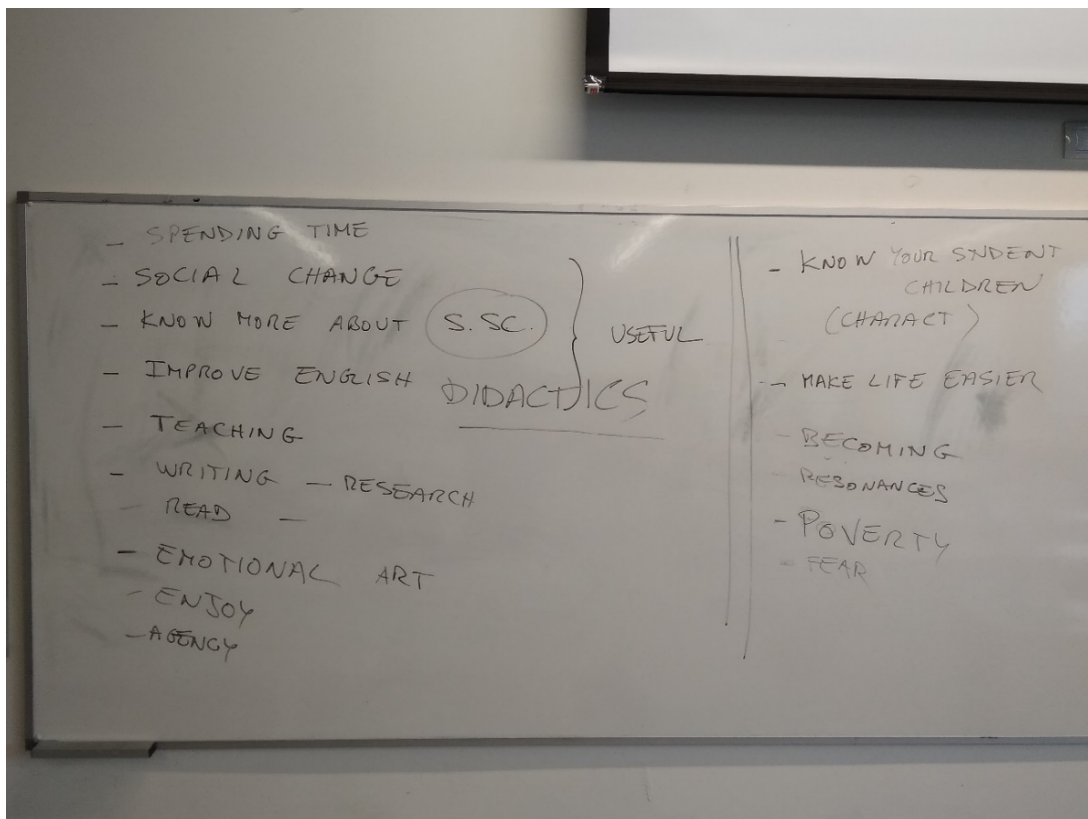 - SPENDING TIME
- SOCIAL CHANGE
- KNOW MORE ABOUT S.SC.
- IMPROVE ENGLISH DIDACTICS
- TEACHING
- WRITING - RESEARCH
- READ -
- EMOTIONAL ART
- ENJOY
- AGENCY
USEFUL
- KNOW YOUR SNDENT
CHILDREN
(CHARACT)
- MAKE LIFE EASIER
- BECOMING
- RESONANCES
- POVERTY
- FEAR